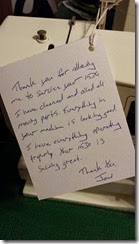 Thank you for allowing
me to service your
I have cleaned and oiled all
moving parts. Everything in
your machine is looking good
I have everything operating
properly. Your is
Sewing great.
Thank You